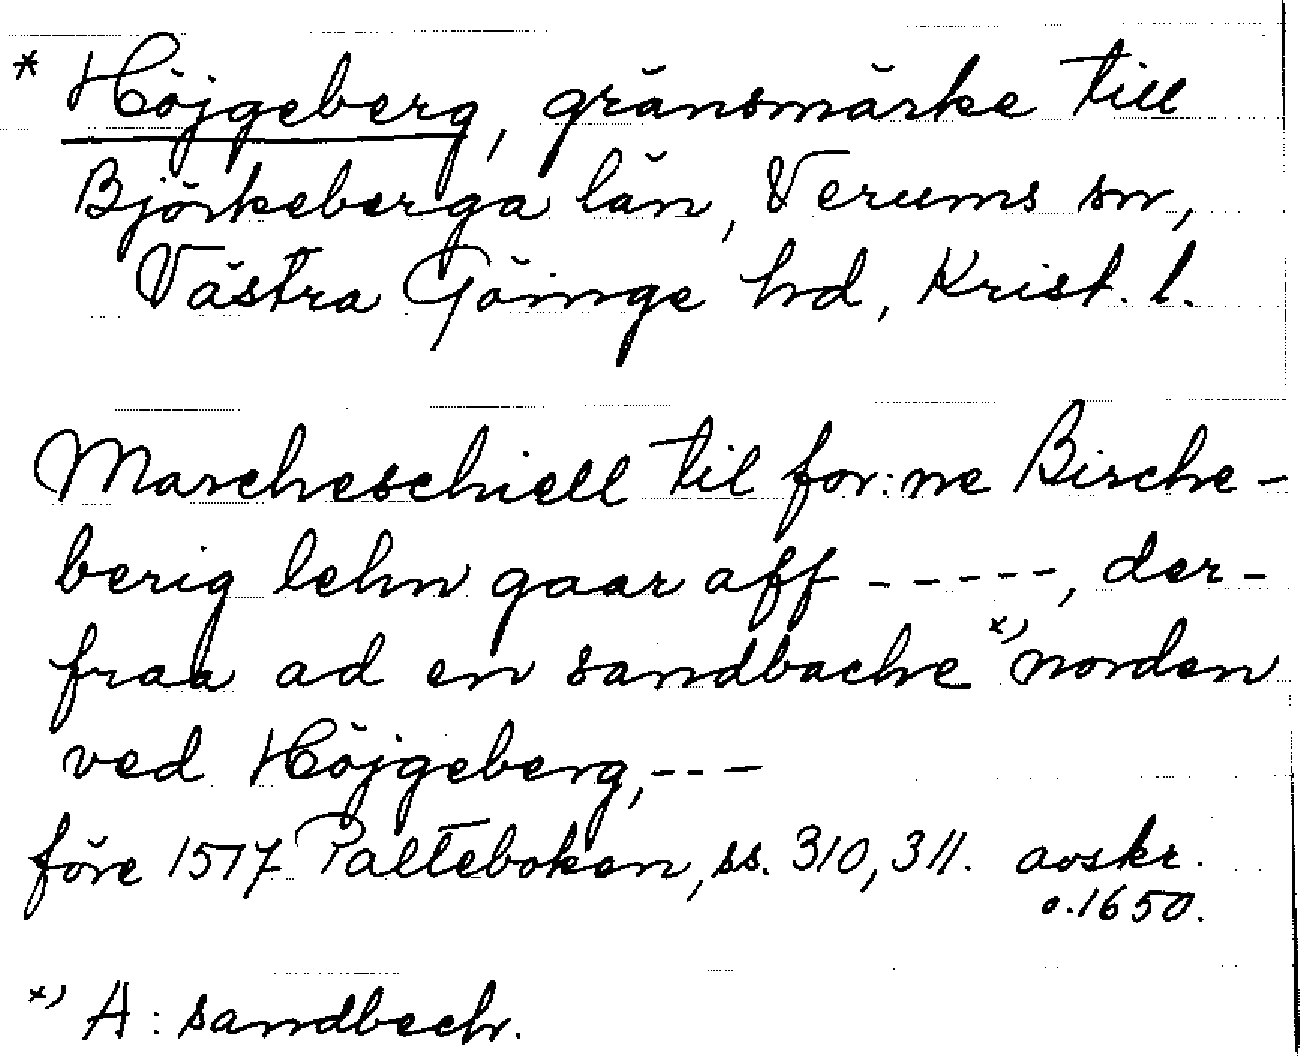 * Höjgeberg, gränsmärke till
Björkeberga län, Verums sn,
Västra Göinge hd, Krist. l.
Marcheschiell til for:ne Birche-
berig lehn gaar aff -----, der-
fraa ad en sandbache x) norden
ved Höjgeberg, ---
före 1517 Palteboken, ss. 310, 311. avskr.
c. 1650.
x) A: sandbech.